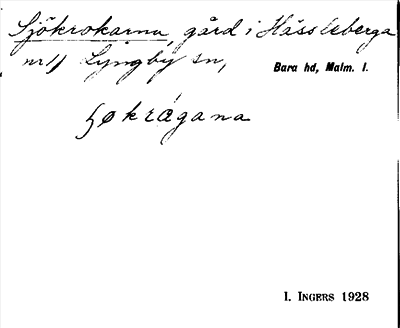 Sjökrokarna, gård i Hässleberga
nr 1, Lyngby sn,
Bara hd, Malm. l.
ʂøkrågana
I. INGERS 1928